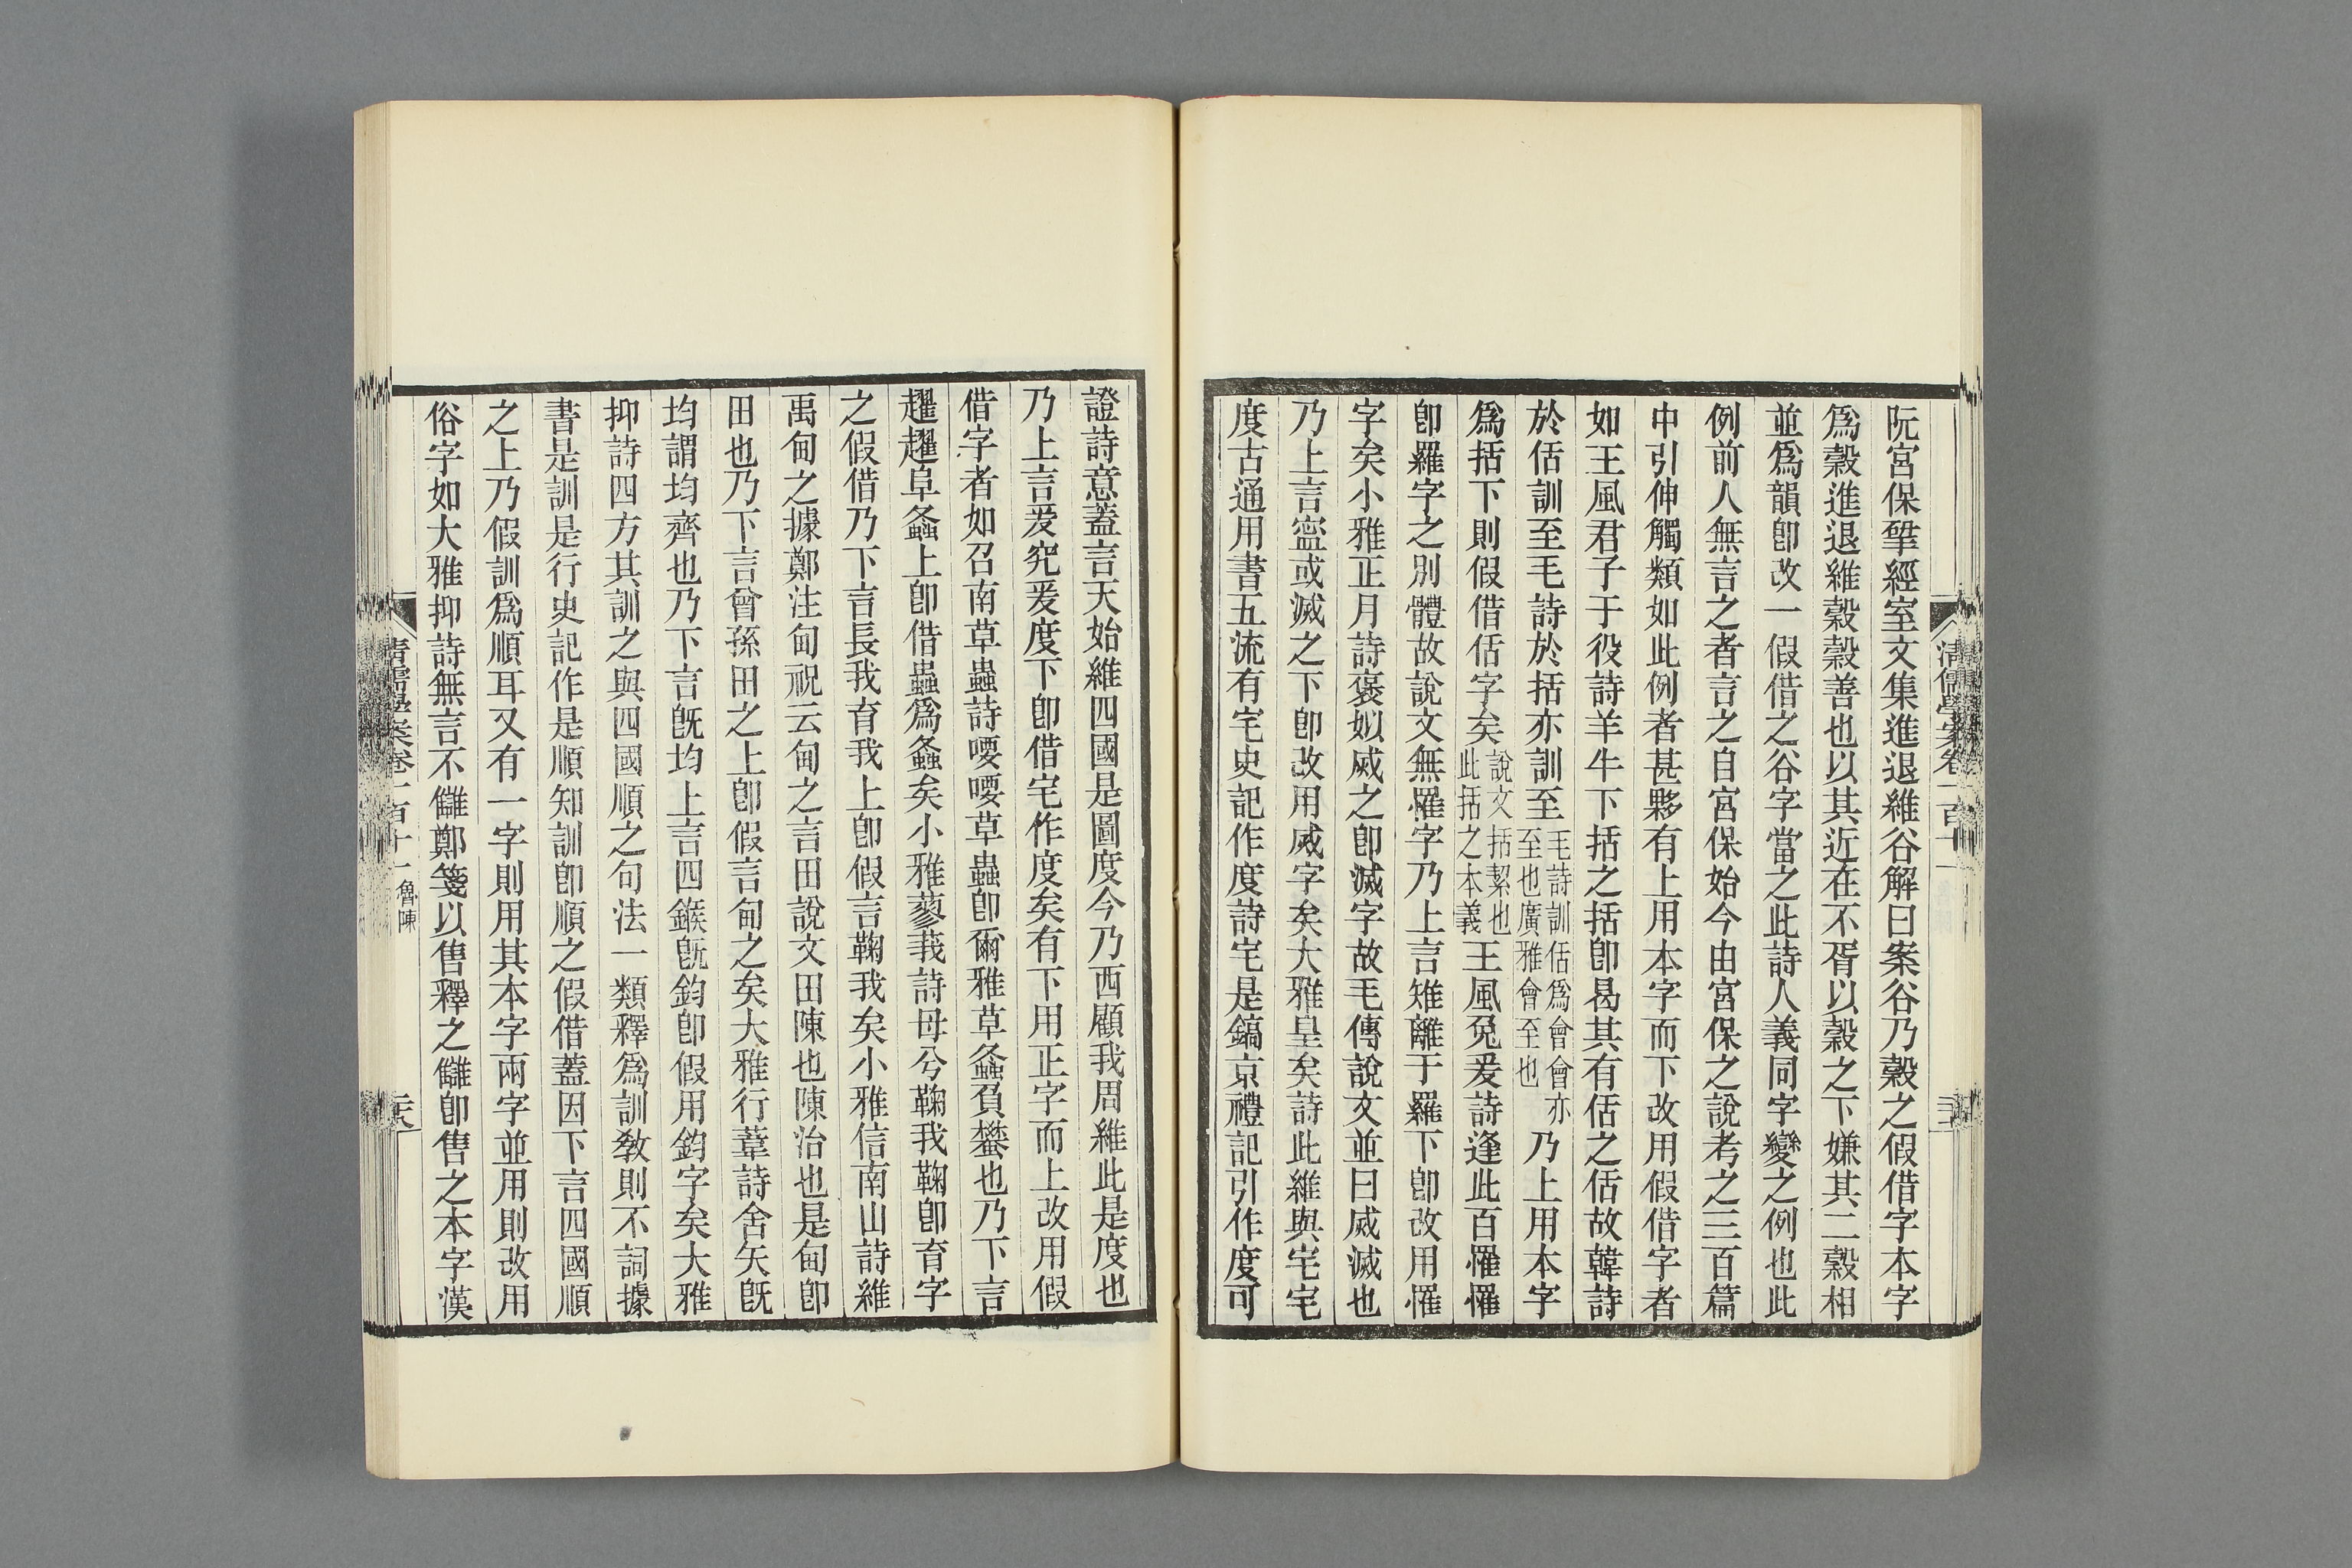 阮宮保揅經室文集進退維谷解曰案谷乃穀之假借字本字
爲穀進退維穀穀善也以其近在不胥以穀之下嫌其二穀相
並爲韻卽改一假借之谷字當之此詩人義同字變之例也此
例前人無言之者言之自宮保始今由宮保之說考之三百篇
中引伸觸類如此例者甚夥有上用本字而下改用假借字者
如王風君子于役詩羊牛下括之括卽曷其有佸之佸故韓詩
於佸訓至毛詩於括亦訓至毛詩訓佸爲會會亦至也廣雅會至也乃上用本字
爲括下則假借佸字矣說文括絜也此括之本義王風兔爰詩逢此百罹罹
卽羅字之別體故說文無罹字乃上言雉離于羅下卽改用罹
字矣小雅正月詩褒姒烕之卽滅字故毛傳說文並曰烕滅也
乃上言寍或滅之下卽改用烕字矣大雅皇矣詩此維與宅宅
度古通用書五流有宅史記作度詩宅是鎬京禮記引作度可
證詩意蓋言天始維四國是圖度今乃西顧我周維此是度也
乃上言爰究爰度下卽借宅作度矣有下用正字而上改用假
借字者如召南草蟲詩喓喓草蟲卽爾雅草螽負蠜也乃下言
趯趯阜螽上卽借蟲爲螽矣小雅蓼莪詩母兮鞠我鞠卽育字
之假借乃下言長我育我上卽假言鞠我矣小雅信南山詩維
禹甸之據鄭注甸祝云甸之言田說文田陳也陳治也是甸卽
田也乃下言曾孫田之上卽假言甸之矣大雅行葦詩舍矢旣
均謂均齊也乃下言旣均上言四鍭旣鈞卽假用鈞字矣大雅
抑詩四方其訓之與四國順之句法一類釋爲訓敎則不詞據
書是訓是行史記作是順知訓卽順之假借蓋因下言四國順
之上乃假訓爲順耳又有一字則用其本字兩字並用則改用
俗字如大雅抑詩無言不讎鄭箋以售釋之讎卽售之本字漢
清儒學案卷一百十一
魯陳